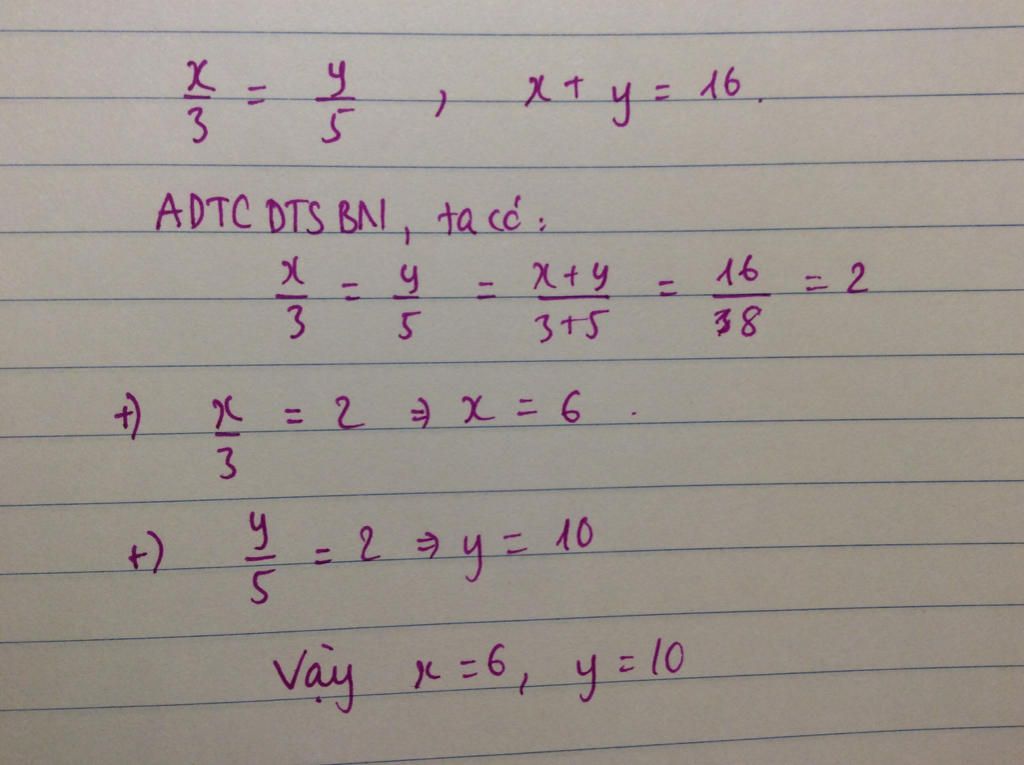 x/3 = y/5 , x + y = 16.
ADTC DTSBN, ta có:
x/3 = y/5 = x+y/3+5 = 16/8 = 2
+) x/3 = 2 ⇒ x = 6.
+) y/5 = 2 ⇒ y = 10
Vậy x = 6, y = 10